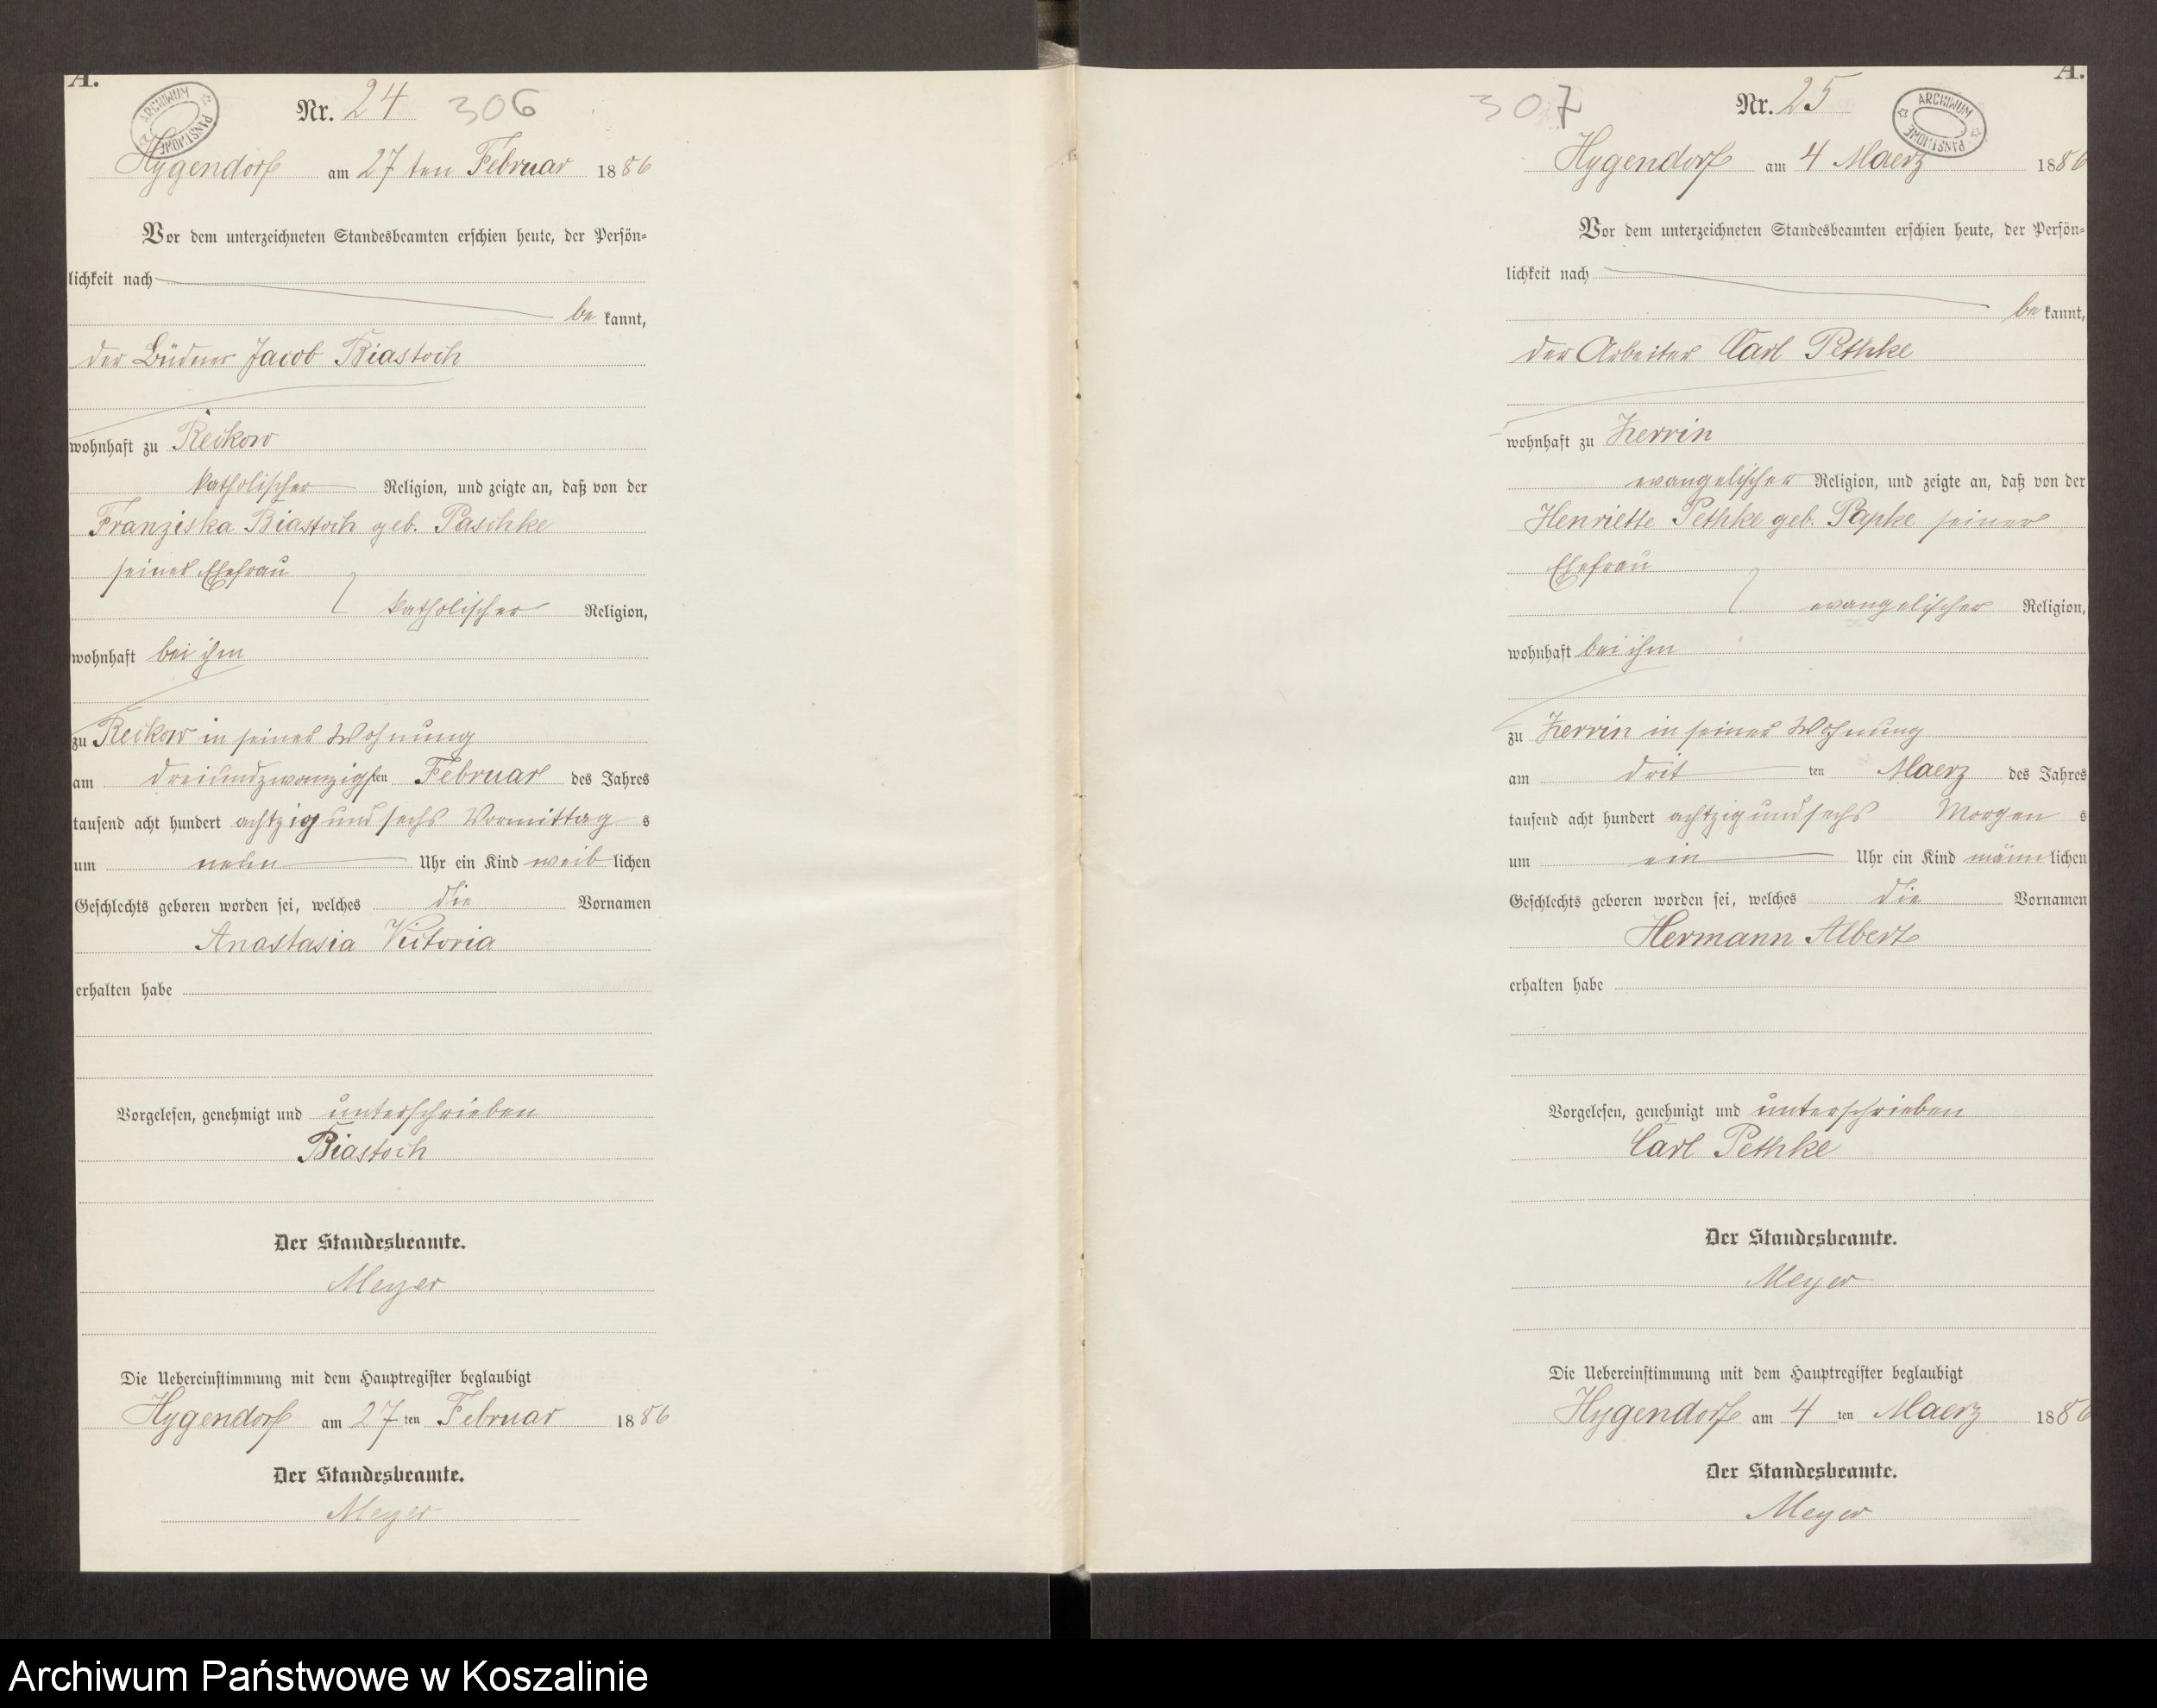 A.
Nr. 24 306
ARCHIWUM PAŃSTWOWE
Hygendorf am 27 ten Februar 1886
Vor dem unterzeichneten Standesbeamten erschien heute, der Persön-
lichkeit nach
be kannt,
der Büdner Jacob Biastoch
wohnhaft zu Reckow
katholischer Religion, und zeigte an, daß von der
Franziska Biastoch geb. Paschke
seiner Ehefrau
katholischer Religion,
wohnhaft bei ihm
zu Reckow in seiner Wohnung
am dreiundzwanzigsten Februar des Jahres
tausend acht hundert achtzig und sechs Vormittag s
um neun Uhr ein Kind weib lichen
Geschlechts geboren worden sei, welches die Vornamen
Anastasia Victoria
erhalten habe
Vorgelesen, genehmigt und unterschrieben
Biastoch
Der Standesbeamte.
Meyer
Die Uebereinstimmung mit dem Hauptregister beglaubigt
Hygendorf am 27 ten Februar 1886
Der Standesbeamte.
Meyer
A.
307 Nr. 25
ARCHIWUM PAŃSTWOWE
Hygendorf am 4 Maerz 1886
Vor dem unterzeichneten Standesbeamten erschien heute, der Persön-
lichkeit nach
be kannt,
der Arbeiter Carl Pethke
wohnhaft zu Zerrin
evangelischer Religion, und zeigte an, daß von der
Henriette Pethke geb. Papke seiner
Ehefrau
evangelischer Religion,
wohnhaft bei ihm
zu Zerrin in seiner Wohnung
am drit ten Maerz des Jahres
tausend acht hundert achtzig und sechs Morgen s
um ein Uhr ein Kind männ lichen
Geschlechts geboren worden sei, welches die Vornamen
Hermann Albert
erhalten habe
Vorgelesen, genehmigt und unterschrieben
Carl Pethke
Der Standesbeamte.
Meyer
Die Uebereinstimmung mit dem Hauptregister beglaubigt
Hygendorf am 4 ten Maerz 1886
Der Standesbeamte.
Meyer
Archiwum Państwowe w Koszalinie